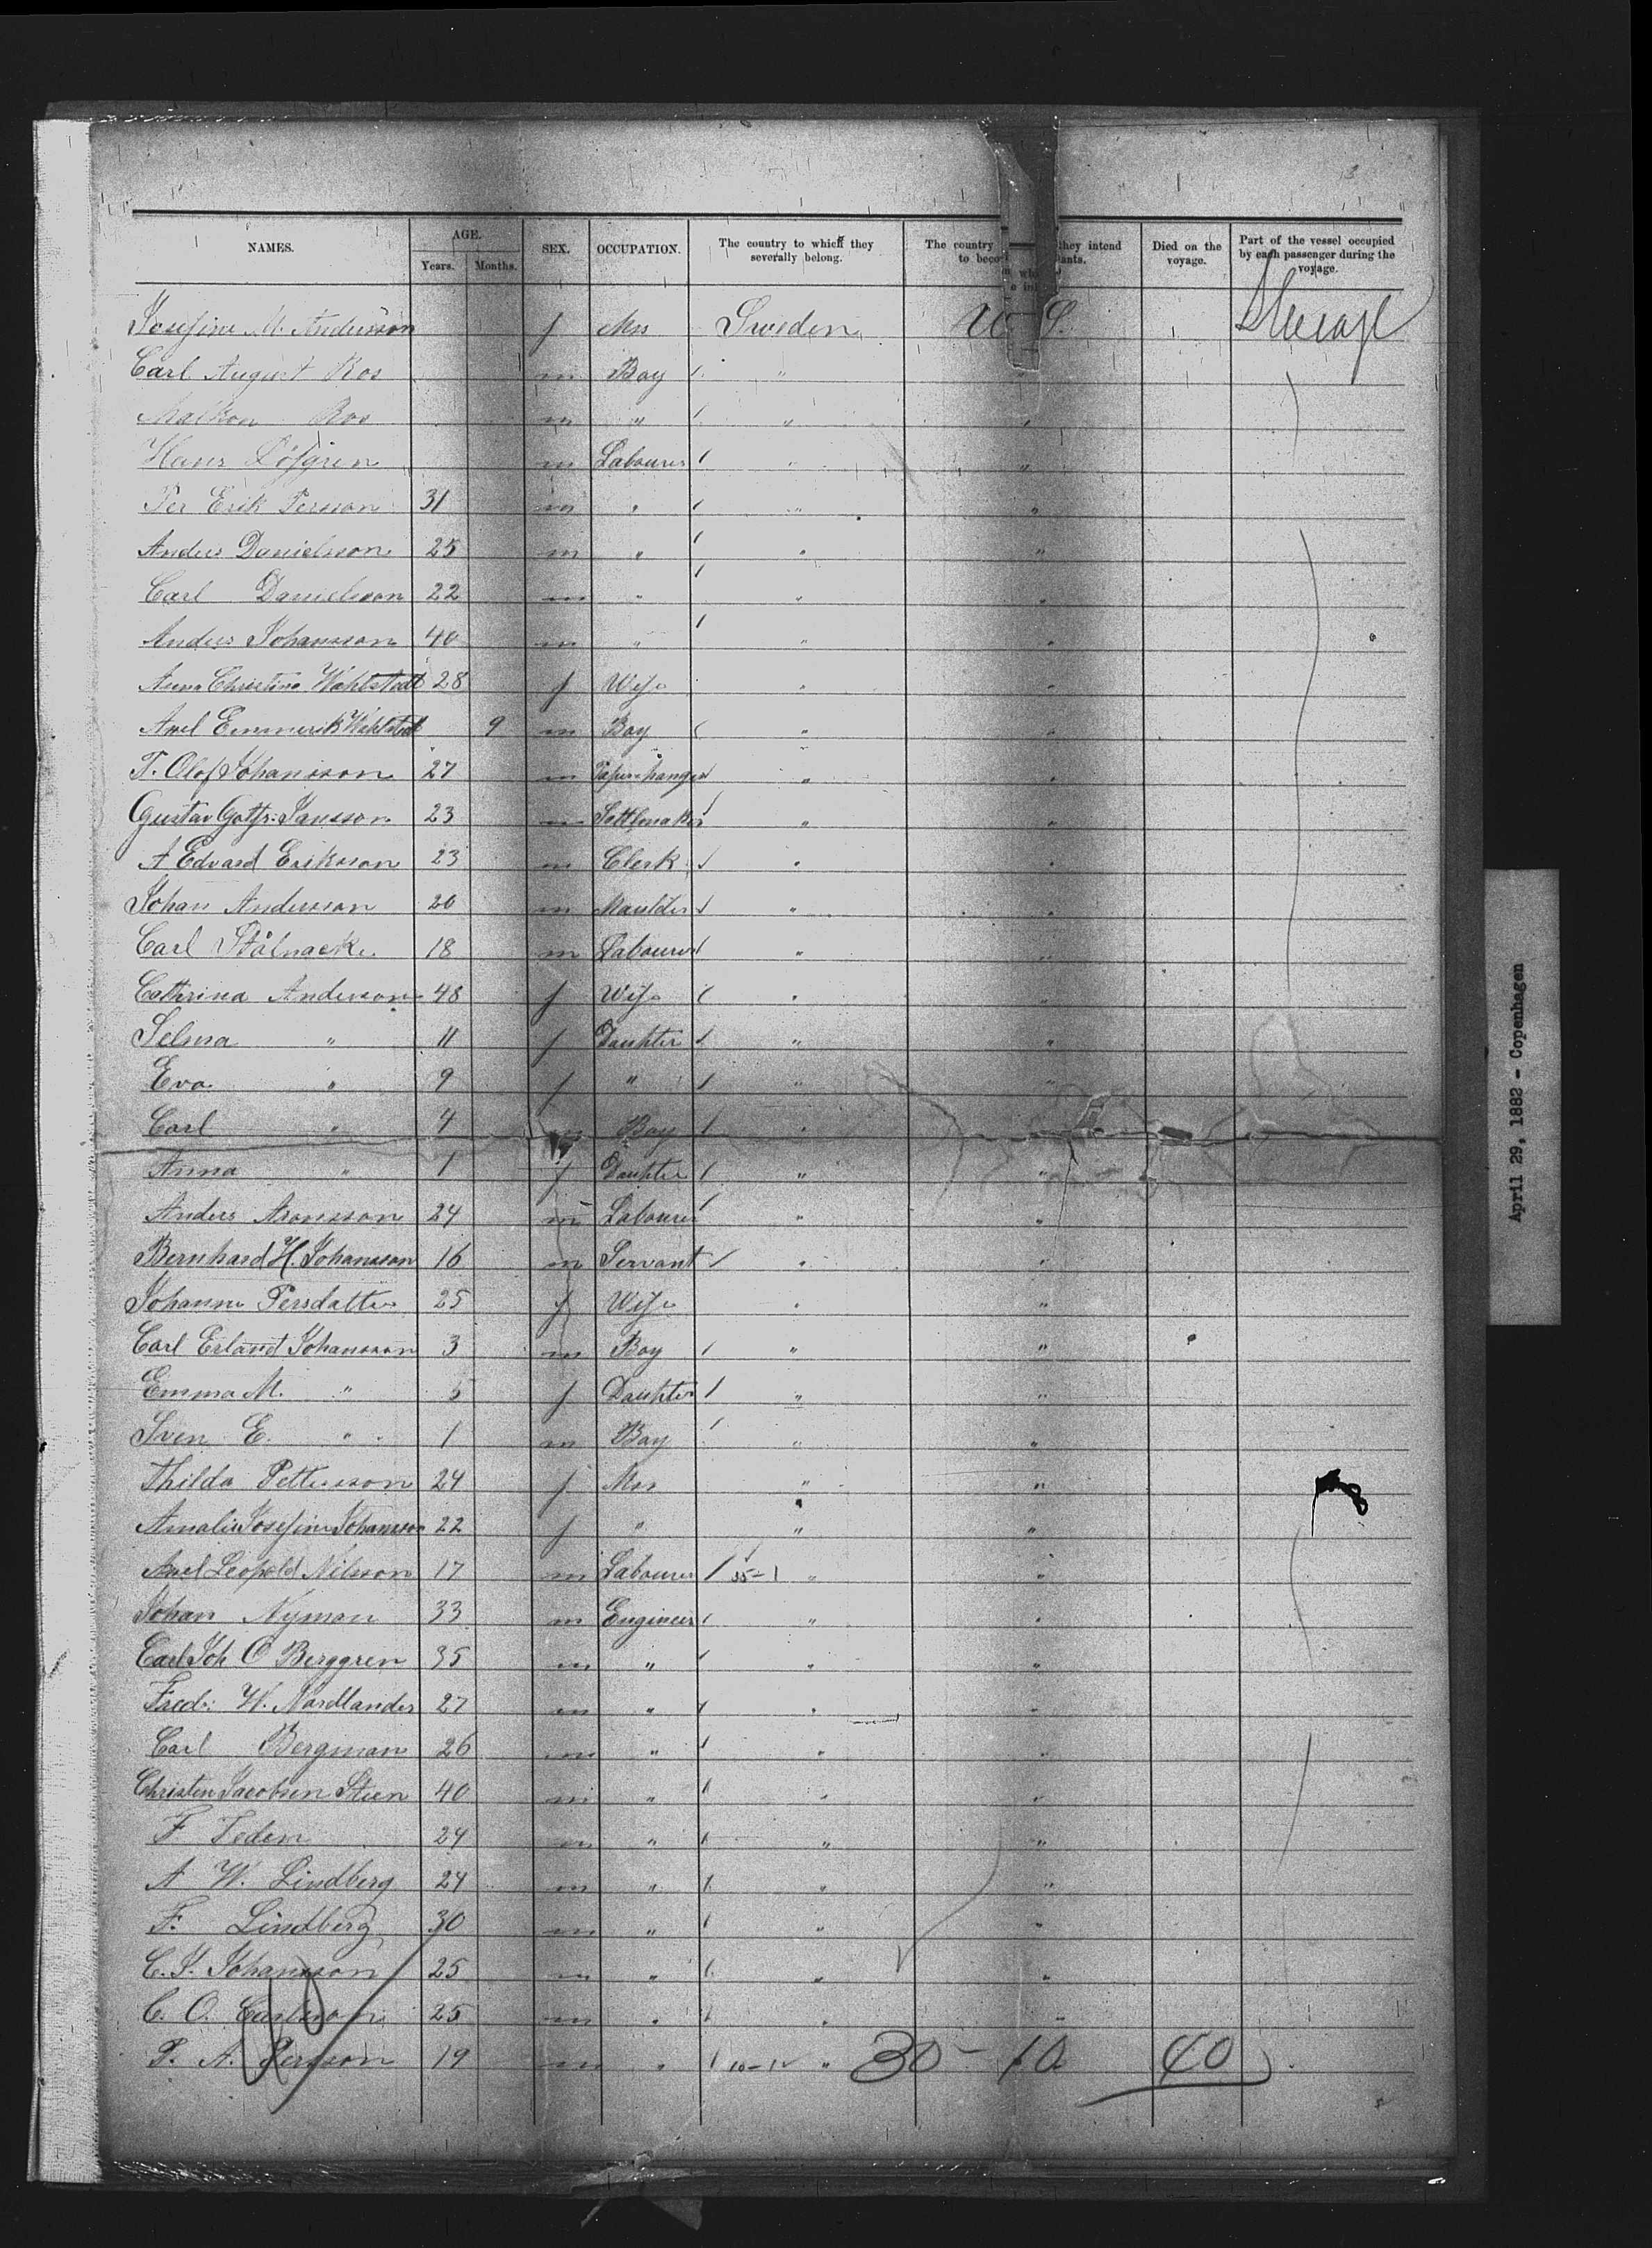 3
NAMES. AGE. SEX. OCCUPATION. The country to which they severally belong. The country they intend to beco ants. Died on the voyage. Part of the vessel occupied by each passenger during the voyage.
Years. Months.
Josefine M. Andersson f Mrs Sweden U. S. Steerage
Carl August Ros m Boy " "
Ros m " " "
Hans Löfgren m Labourer " "
Per Erik Persson 31 m " " "
Anders Danielsson 25 m " " "
Carl Danielsson 22 m " " "
Anders Johansson 40 m " " "
Anna Christina Wahlstedt 28 f Wife " "
Axel Emmerik Wahlstedt 9 m Boy " "
F. Olof Johansson 27 m Paperhanger " "
Gustav Gotfr. Jansson 23 m " "
A Edvard Eriksson 23 m Clerk " "
Johan Andersson 20 m Moulder " "
Carl Stålnacke 18 m Labourer " "
Cathrina Andersson 48 f Wife " "
Selma " 11 f Daughter " "
Eva " 9 f " " "
Carl " 4 m Boy " "
Anna " 1 f Daughter " "
Anders Aronsson 24 m Labourer " "
Bernhard H. Johansson 16 m Servant " "
Johanne Persdatter 25 f Wife " "
Carl Erland Johansson 3 m Boy " "
Emma M. " 5 f Daughter " "
Sven E. " 1 m Boy " "
Thilda Pettersson 24 f Mrs " "
Amalie Josefine Johansson 22 f " " "
Axel Leopold Nilsson 17 m Labourer 35-1 " "
Johan Nyman 33 m Engineer " "
Carl Joh O Berggren 35 m " " "
Fredr. W. Nordlander 27 m " " "
Carl Bergman 26 m " " "
Christen Jacobsen Steen 40 m " " "
F Tedem 24 m " " "
A W. Lindberg 24 m " " "
F. Lindberg 30 m " " "
C. J. Johansson 25 m " " "
C. O. Carlsson 25 m " " "
P. A. Persson 19 m " 10-1 " 30 - 10 40
April 29, 1882 - Copenhagen